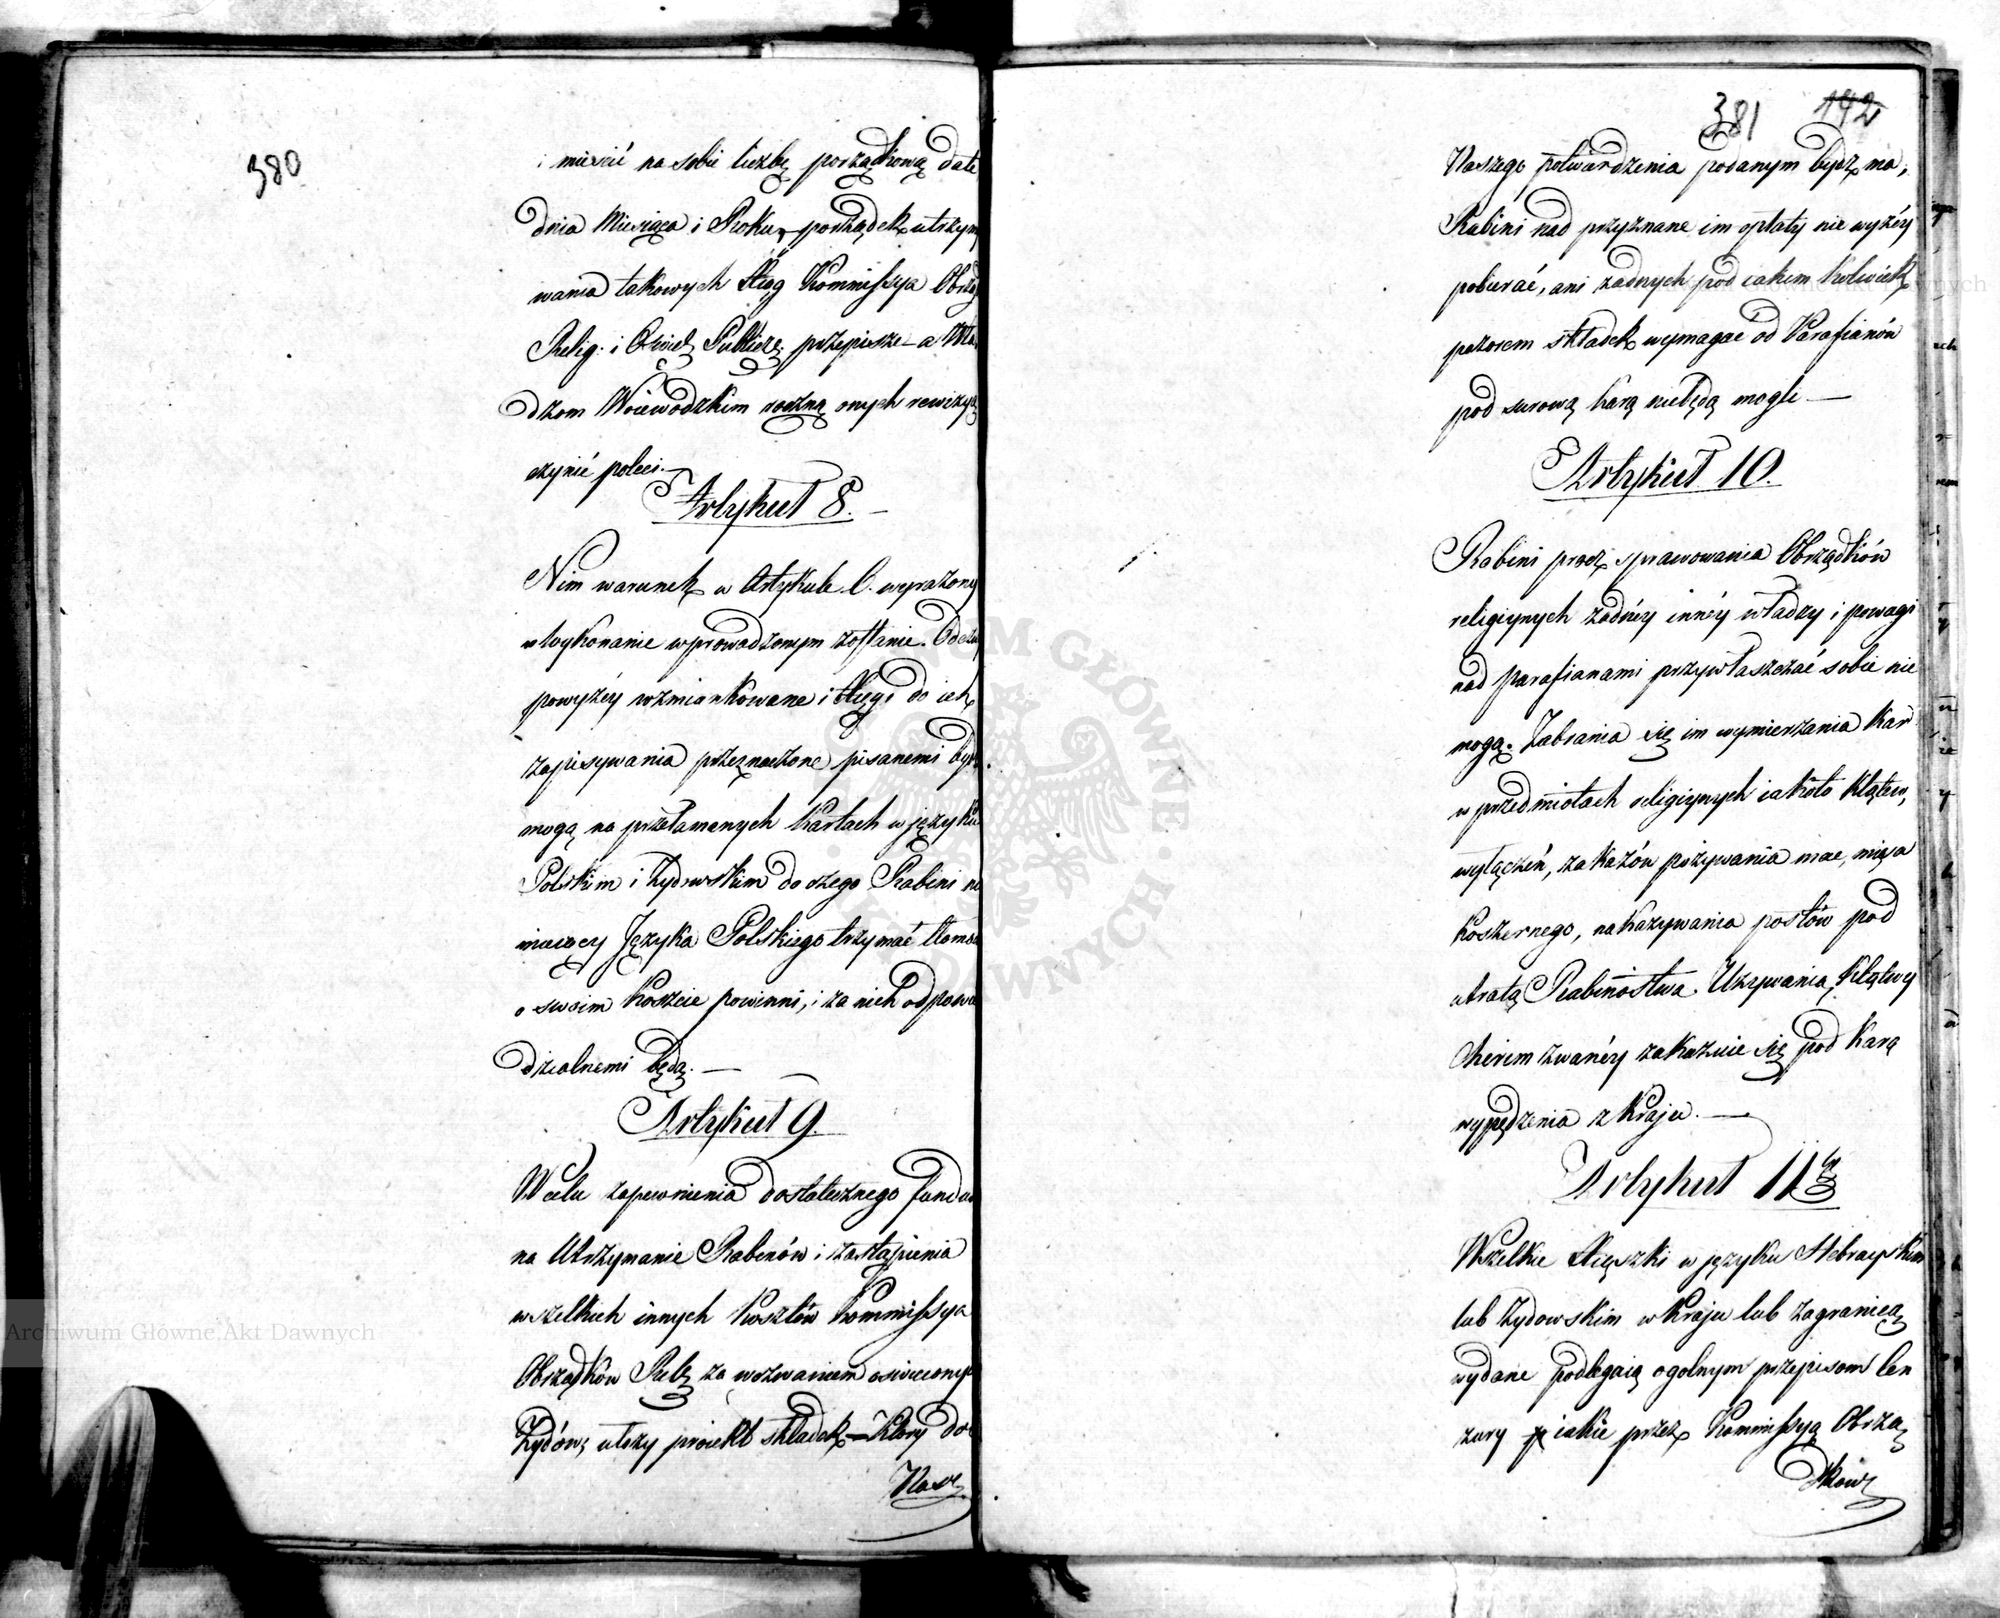 380
i mieścić na sobie liczbę porządkową datę
dnia Miesiąca i Roku, porządek utrzym
wania takowych Xiąg Kommissya Obrzą
Relig: i Oświec Publicz: przepisze a Wła
dzom Woiewodzkim roczną onych rewizyą
czynić poleci.—
Artykuł 8.—
Nim warunek w Artykule 6. wyrażony
w wykonanie wprowadzonym zostanie. Odezwy
powyżéy wzmiankowane i Xięgi do ich
zapisywania przeznaczone pisanemi być
mogą na przełamanych kartach w języku
Polskim i Żydowskim do czego Rabini nie
umieiący Języka Polskiego trzymać tłomac
o swoim koszcie powinni, i za nich odpowie
dzialnemi będą.—
Artykuł 9.
W celu zapewnienia dostatecznego fundu
na Utrzymanie Rabinów i zastąpienia
wszelkich innych kosztów Kommissya
Obrządków Relig za wezwaniem oświeconych
Żydów, ułoży proiekt składek—który do
Nasz
381 192
Naszego potwierdzenia podanym bydź ma,
Rabini nad przyznane im opłaty nie wyżéy
pobierać, ani żadnych pod iakim kolwiek
pozorem składek wymagać od Parafianów
pod surową karą niebędą mogli.—
Artykuł 10.
Rabini prócz sprawowania Obrządków
religiynych żadnéy innéy władzy i powagi
nad parafianami przywłaszczać sobie nie
mogą. Zabrania się im wymierzania kar
w przedmiotach religiynych iakoto klątew,
wyłączeń, zakazów pożywania mac, mięsa
koszernego, nakazywania postów pod
utratą Rabinostwa. Używania klątwy
Cherem zwanéy zakazuie się pod karą
wypędzenia z Kraju.—
Artykuł 11
Wszelkie Xiąszki w języku Hebrayskim
lub Żydowskim w Kraju lub Zagranicą
wydane podlegaią ogolnym przepisom Cen
zury iakie przez Kommissyą Obrzą
dków
Archiwum Główne Akt Dawnych